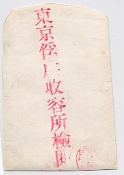 東京俘虜收容所檢閱